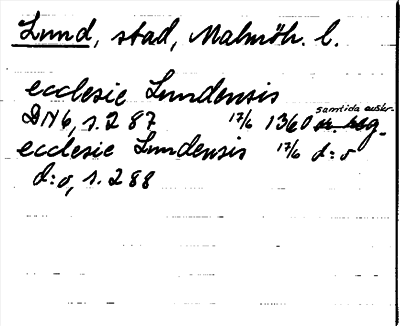 Lund, stad, Malmöh. l.
ecclesie Lundensis
samtida avskr.
DN 6, s. 287 17/6 1360
ecclesie Lundensis 17/6 d:o
d:o, s. 288